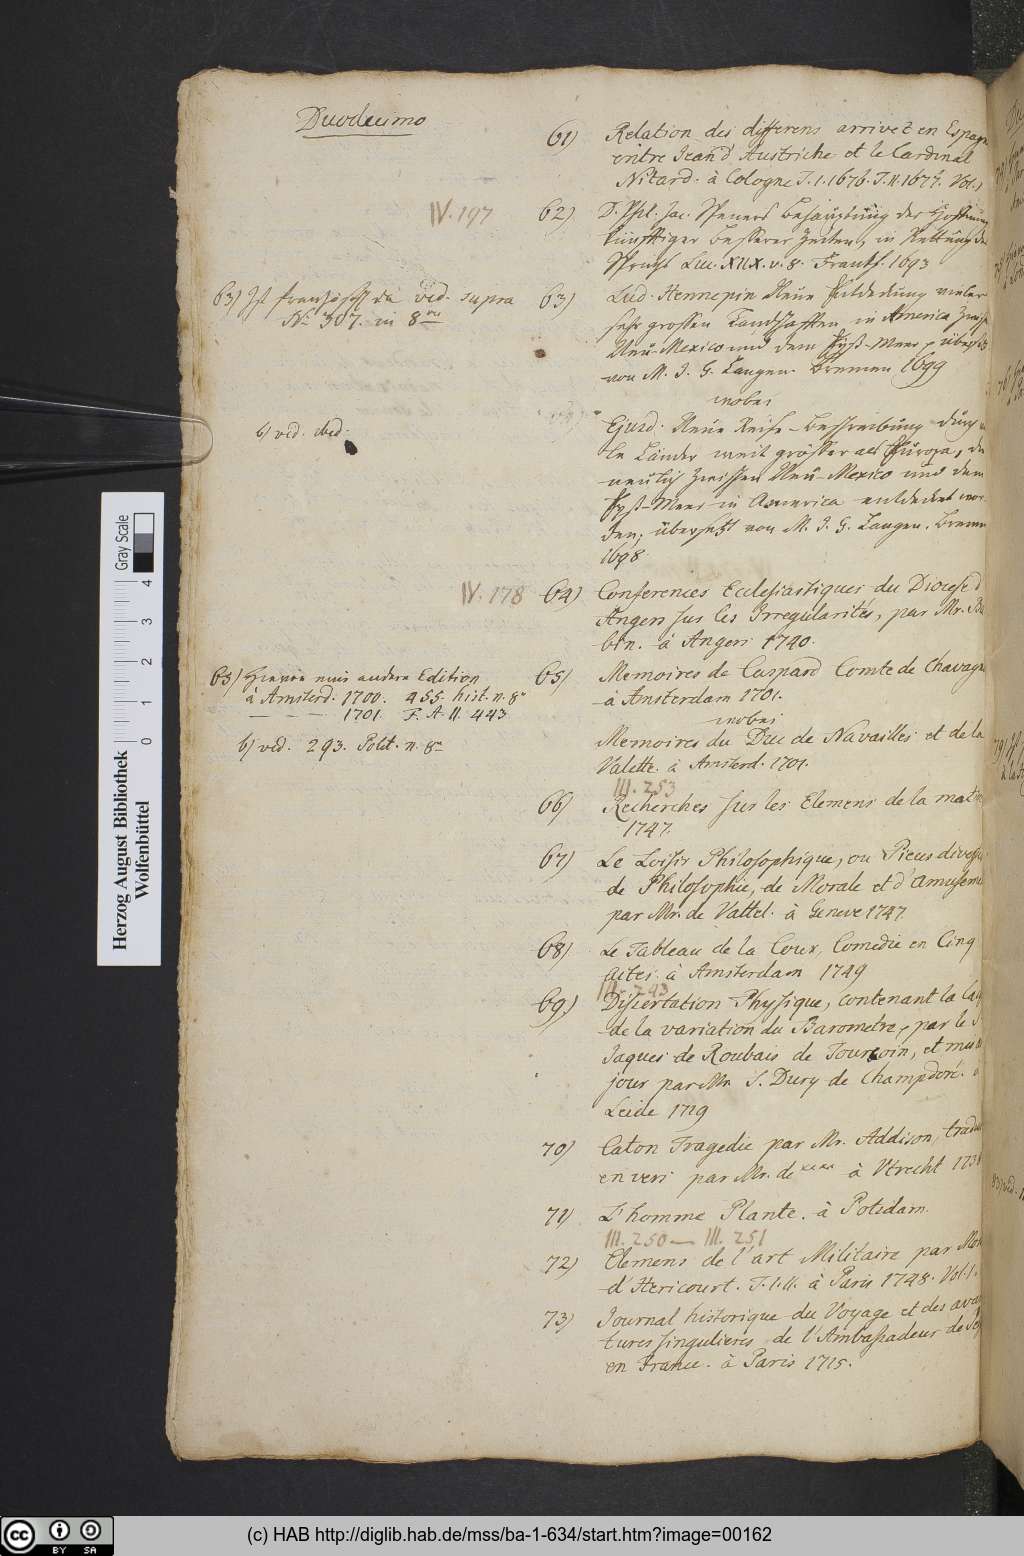 Duodecimo
61) Relation des differens arrivez en Espagne
entre Jean d'Austriche et le Cardinal
Nitard. à Cologne T. I. 1676. T. II. 1677. Vol. 1
IV. 197
62) D. Phil. Jac. Speners Behauptung der Hoffnung
künfftiger besserer Zeiten, in Rettung des
Spruchs Luc. XIIX. v. 8. Franckf. 1693
63) Ist französisch da vid. supra
No 307. in 8vo
63) Lud. Hennepin Neue Entdeckung vieler
sehr grossen Landschafften in America zwisch
Neu-Mexico und dem Eyß-Meer, übersetzt
von M. J. G. Langen. Bremen 1699
wobei
b) vid. ibid.
Ejusd. Neue Reise-Beschreibung durch
Länder weit grösser als Europa, die
neulich zwischen Neu-Mexico und dem
Eyß-Meer in America entdecket wor-
den; übersetzt von M. J. G. Langen. Bremen
1698
IV. 178
64) Conferences Ecclesiastiques du Diocese d'
Angers sur les Irregularités, par Mr. Ba
bin. à Angers 1740.
65) Hievon eine andere Edition
à Amsterd. 1700. 455. hist. n. 8o
— — — 1701 F. A. II. 443
65) Memoires de Gaspard Comte de Chavagn
à Amsterdam 1701.
wobei
b) vid. 293. Polit. n. 8o
Memoires du Duc de Navailles et de la
Valette. à Amsterd. 1701.
III. 253
66) Recherches sur les Elemens de la mat
1747.
67) Le Loisir Philosophique, ou Pieces diverses
de Philosophie, de Morale et d'Amuseme
par Mr. de Vattel. à Geneve 1747
68) Le Tableau de la Cour, Comedie en Cinq
Actes à Amsterdam 1749
III. 243
69) Dissertation Physique, contenant la Cau
de la variation du Barometre, par le S
Jaques de Roubais de Tourcoin, et mis au
jour par Mr. S. Dury de Champdoré. à
Leide 1719
70) Caton Tragedie par Mr. Addison, trad
en vers par Mr. de **** à Utrecht 1738
71) L'homme Plante. à Potsdam
III. 250 — III. 251
72) Elemens de l'art Militaire par Mr
d'Hericourt. T. I. II. à Paris 1748. Vol. 1.
73) Journal historique du Voyage et des avan
tures singulieres de l'Ambassadeur de Per
en France. à Paris 1715.
Herzog August Bibliothek
Wolfenbüttel
Gray Scale
0 1 2 3 4
cc BY SA
(c) HAB http://diglib.hab.de/mss/ba-1-634/start.htm?image=00162